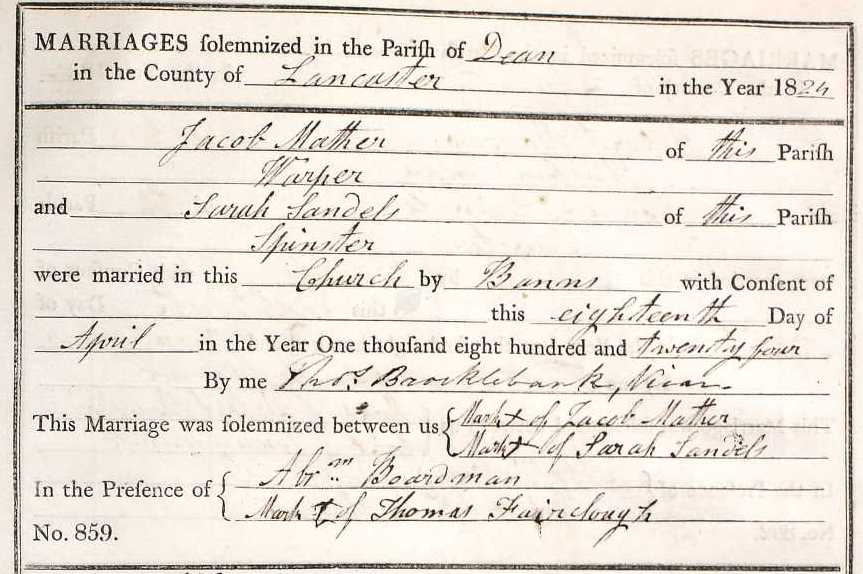 MARRIAGES ſolemnized in the Pariſh of Dean
in the County of Lancaster in the Year 1824
Jacob Mather of this Pariſh
Warper
and Sarah Sandels of this Pariſh
Spinster
were married in this Church by Banns with Conſent of
this eighteenth Day of
April in the Year One thouſand eight hundred and twenty four
By me Thos. Brocklebank, Vicar
This Marriage was ſolemnized between us Mark X of Jacob Mather
Mark X of Sarah Sandels
In the Preſence of Abrm Boardman
Mark X of Thomas Fairclough
No. 859.